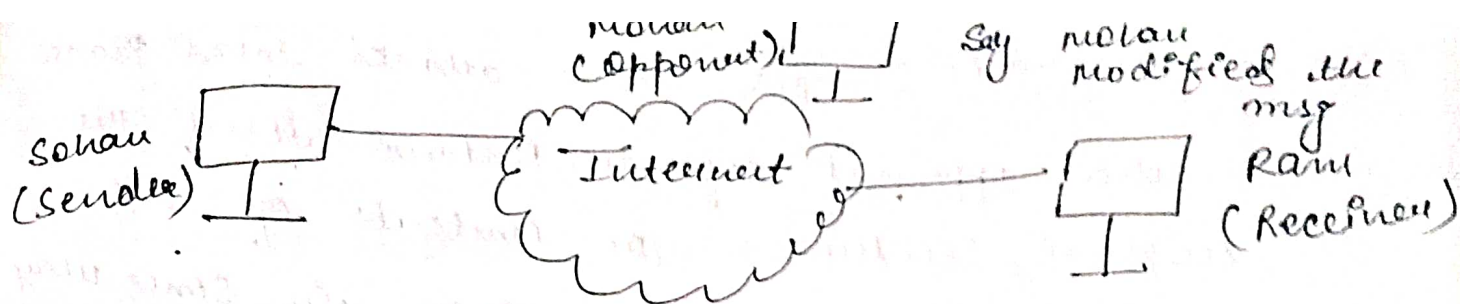 Mohan
(opponent)
Say Mohan
modified the
msg
Sohan
(Sender)
Internet
Ram
(Receiver)